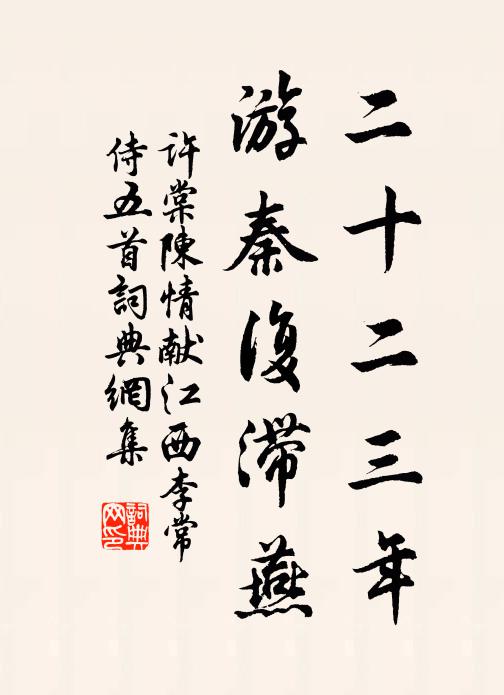 二十二三年
游秦復滯燕
許棠陳情献江西李常
侍五首詞典網集
詞典网印